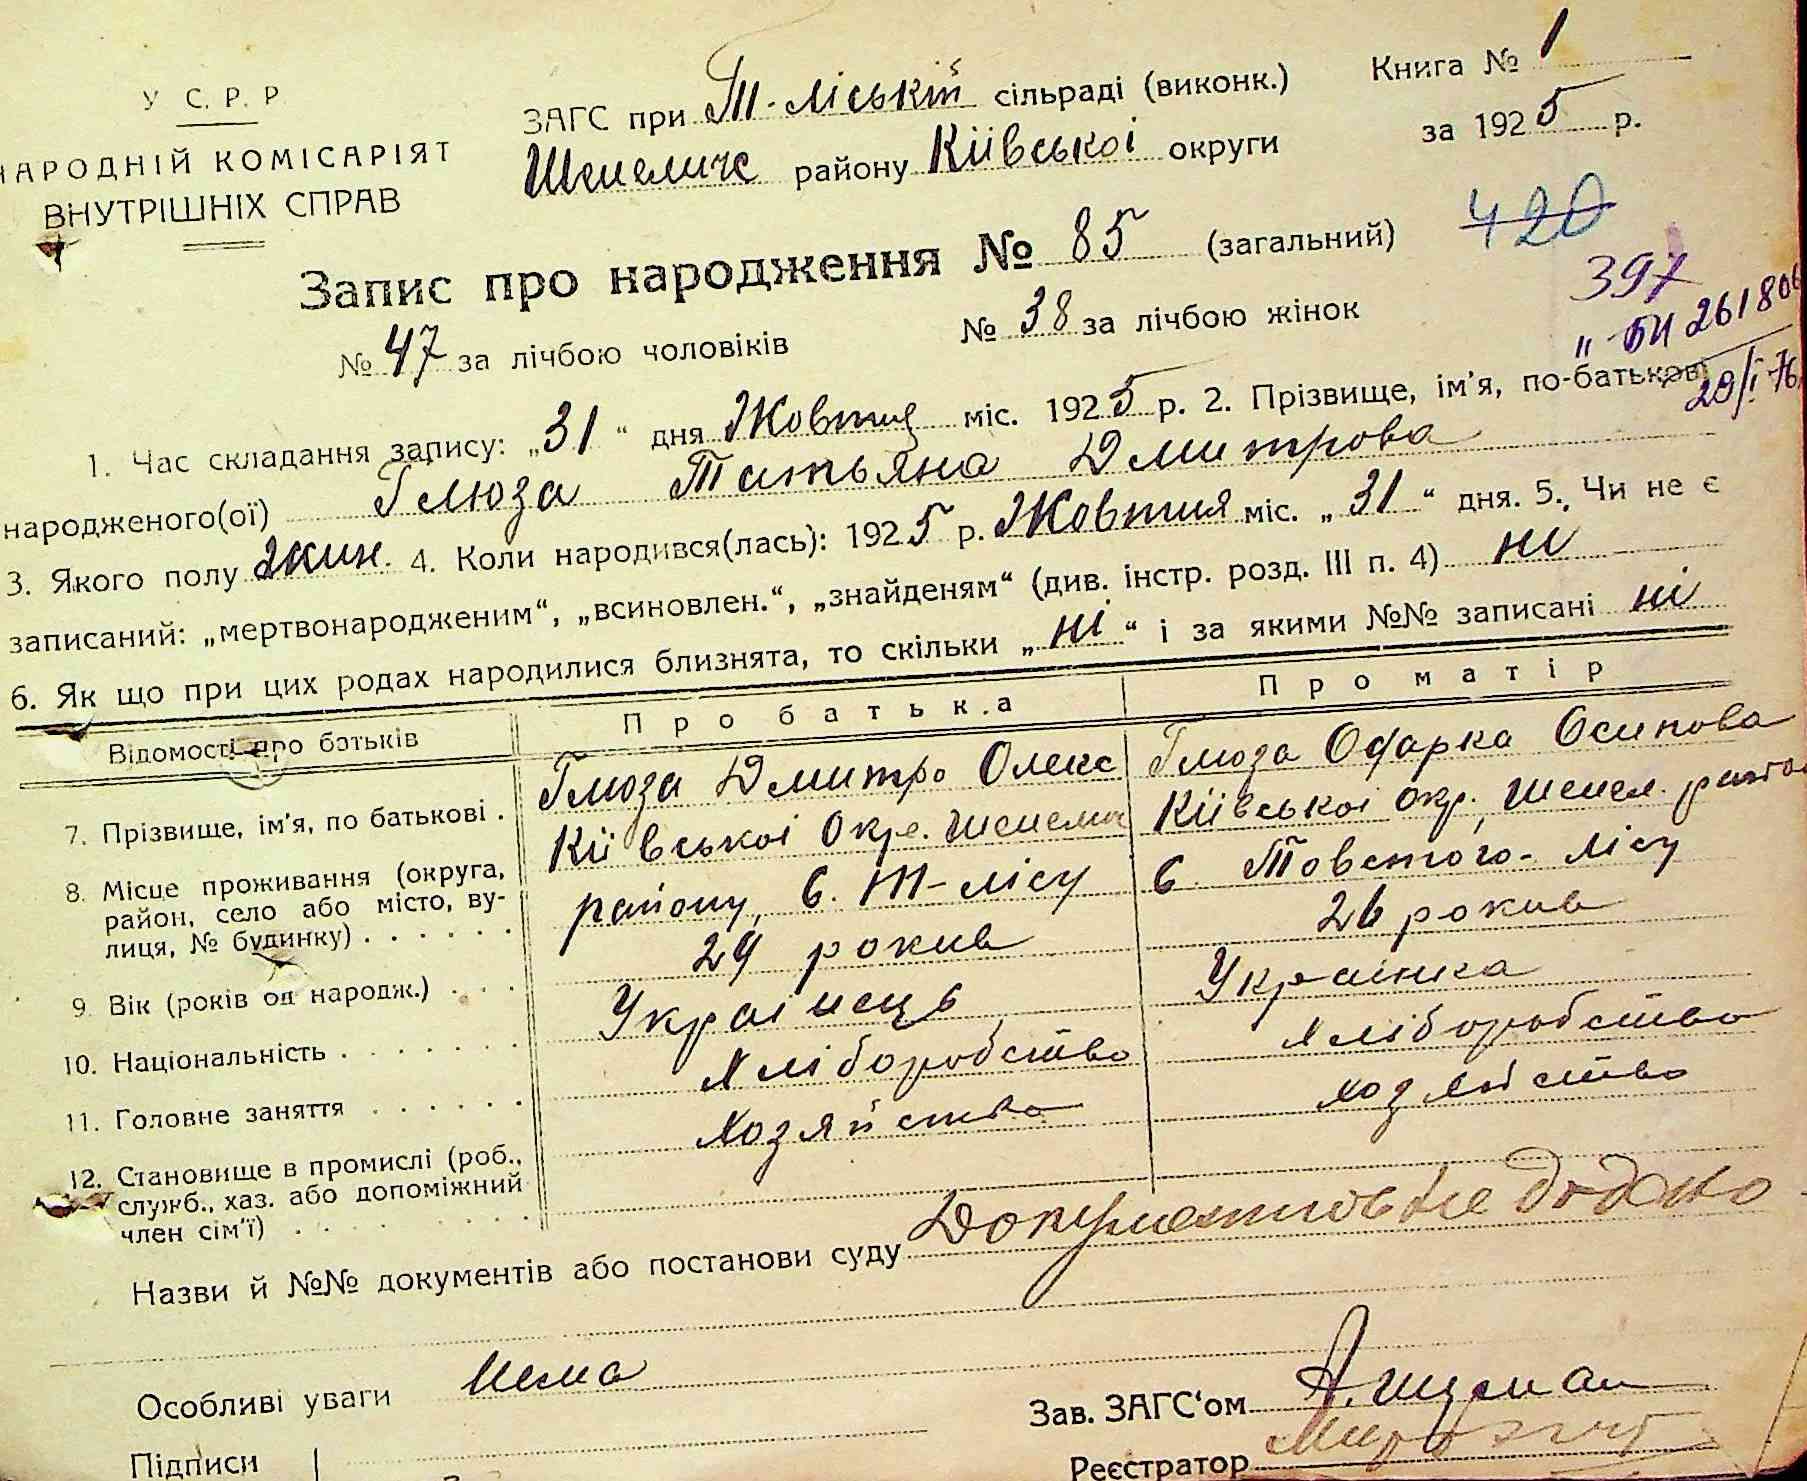 У С. Р. Р
НАРОДНІЙ КОМІСАРІЯТ
ВНУТРІШНІХ СПРАВ
ЗАГС при Т-ліській сільраді (виконк.)
Шепелич району Київської округи
Книга № 1
за 1925 р.
Запис про народження № 85 (загальний)
420
397
№ 47 за лічбою чоловіків № 38 за лічбою жінок
261806
29/I-76
1. Час складання запису: „31“ дня Жовтня міс. 1925 р. 2. Прізвище, ім'я, по-батькові
народженого(ої) Глюза Татьяна Дмитрова
3. Якого полу жин. 4. Коли народився(лась): 1925 р. Жовтня міс. „31“ дня. 5. Чи не є
записаний: „мертвонародженим“, „всиновлен.“, „знайденям“ (див. інстр. розд. III п. 4) ні
6. Як що при цих родах народилися близнята, то скільки „ні“ і за якими №№ записані ні
Відомості про батьків Про батька Про матір
7. Прізвище, ім'я, по батькові . Глюза Дмитро Олекс Глюза Одарка Осипова
8. Місце проживання (округа, район, село або місто, вулиця, № будинку) . . . . . .
Київської Окр. Шепелич
району, с. Т-лісу
Київської окр, Шепел. район
с. Товстого-лісу
9. Вік (років од народж.) . . . 29 рокив 26 рокив
10. Національність . . . . . . . Українець Українка
11. Головне заняття . . . . . . Хліборобство Хліборобство
12. Становище в промислі (роб., служб., хаз. або допоміжний член сім'ї) . . . . . . . .
Хозяйство хозяйство
Назви й №№ документів або постанови суду Документов не додано
Особливі уваги Нема
Зав. ЗАГС‘ом
Підписи
Реєстратор